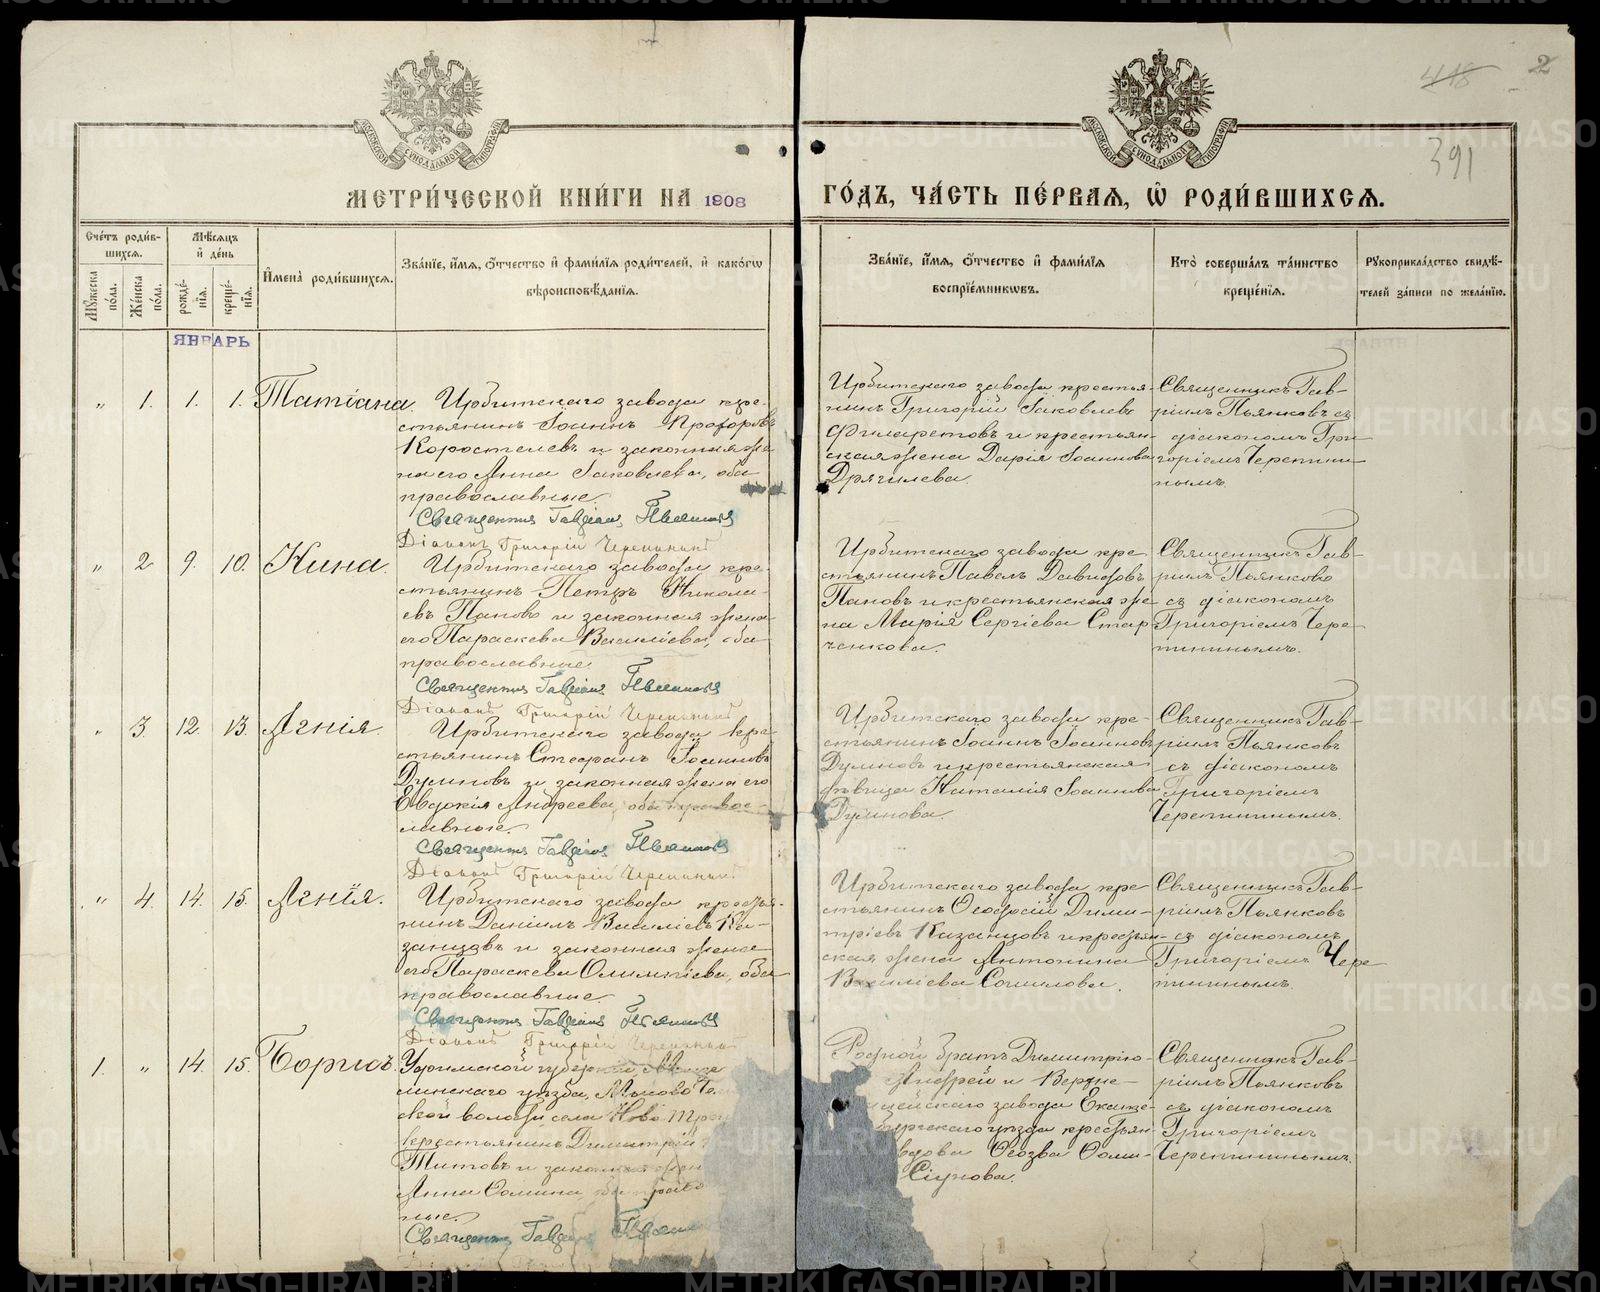 418
2
391
МОСКОВСКОЙ СѴНОДАЛЬНОЙ ТИПОГРАФІИ
МОСКОВСКОЙ СѴНОДАЛЬНОЙ ТИПОГРАФІИ
МЕТРИ́ЧЕСКОЙ КНИ́ГИ НА 1908
ГО́ДЪ, ЧА́СТЬ ПЕ́РВАЯ, Ѡ РОДИ́ВШИХСЯ.
Сче́тъ роди́в-
шихся.
Мѣ́сяцъ
и҆ де́нь
Мꙋ́жеска по́ла.
Же́нска по́ла.
рожде́-нїя.
креще́-нїя.
И҆мена̀ роди́вшихся.
Зва́нїе, и҆́мя, ѻ҆́тчество и҆ фами́лїа роди́телей, и҆ како́гѡ
вѣроисповѣ́данїя.
Зва́нїе, и҆́мя, ѻ҆́тчество и҆ фами́лїа
воспрїе́мникѡвъ.
Кто̀ соверша́лъ та́инство
креще́нїя.
Рꙋкоприкла́дство свидѣ́-
телей за́писи по жела́нїю.
ЯНВАРЬ
„ 1. 1. 1. Татіана.
Ирбитскаго завода кре-
стьянинъ Іоаннъ Прохоровъ
Коростелевъ и законная же-
на его Анна Іаковлева, оба
православные.
Священникъ Гавріилъ Пьянковъ
Діаконъ Григорій Черепанинъ
Ирбитскаго завода крестья-
нинъ Григорій Іаковлевъ
Филаретовъ и крестьян-
ская жена Дарія Іоаннова
Дрягилева.
Священникъ Гав-
ріилъ Пьянковъ съ
діакономъ Гри-
горіемъ Черепани-
нымъ.
„ 2. 9. 10. Нина.
Ирбитскаго завода кре-
стьянинъ Петръ Никола-
евъ Пановъ и законная жена
его Параскева Васильева, оба
православные.
Священникъ Гавріилъ Пьянковъ
Діаконъ Григорій Черепанинъ
Ирбитскаго завода кре-
стьянинъ Павелъ Давидовъ
Пановъ и крестьянская же-
на Марія Сергіева Стар-
ченкова.
Священникъ Гав-
ріилъ Пьянковъ
съ діакономъ
Григоріемъ Чере-
панинымъ.
„ 3. 12. 13. Агнія.
Ирбитскаго завода кре-
стьянинъ Стефанъ Іоанновъ
Думновъ и законная жена его
Евдокія Андреева, оба православ-
лавные.
Священникъ Гавріилъ Пьянковъ
Діаконъ Григорій Черепанинъ
Ирбитскаго завода кре-
стьянинъ Іоаннъ Іоанновъ
Думновъ и крестьянская
дѣвица Наталія Іоаннова
Думнова.
Священникъ Гав-
ріилъ Пьянковъ
съ діакономъ
Григоріемъ
Черепанинымъ.
„ 4. 14. 15. Агнія.
Ирбитскаго завода крестья-
нинъ Даніилъ Василіевъ Ка-
занцовъ и законная жена
его Параскева Олимпіева, оба
православные.
Священникъ Гавріилъ Пьянковъ
Діаконъ Григорій Черепанинъ
Ирбитскаго завода кре-
стьянинъ Ѳеодосій Дими-
тріевъ Казанцовъ и крестьян-
ская жена Антонина
Василіева Соколова.
Священникъ Гав-
ріилъ Пьянковъ
съ діакономъ
Григоріемъ Чере-
панинымъ.
1. „ 14. 15. Борисъ
Уфимской губерніи,
уѣзда,
ской волости села Ново-Трои
крестьянинъ Димитрій
Титовъ и законная жен
Анна Ѳомина, оба право
ные.
Священникъ Гавріилъ Пьян
Родной братъ Димитрію
Андрей и Верхне-
завода Екате-
бургскаго уѣзда крестьян
вдова Ѳеозва Ѳоми-
Сіунова.
Священникъ Гав-
ріилъ Пьянковъ
съ діакономъ
Григоріемъ
Черепанинымъ.
METRIKI.GASO-URAL.RU